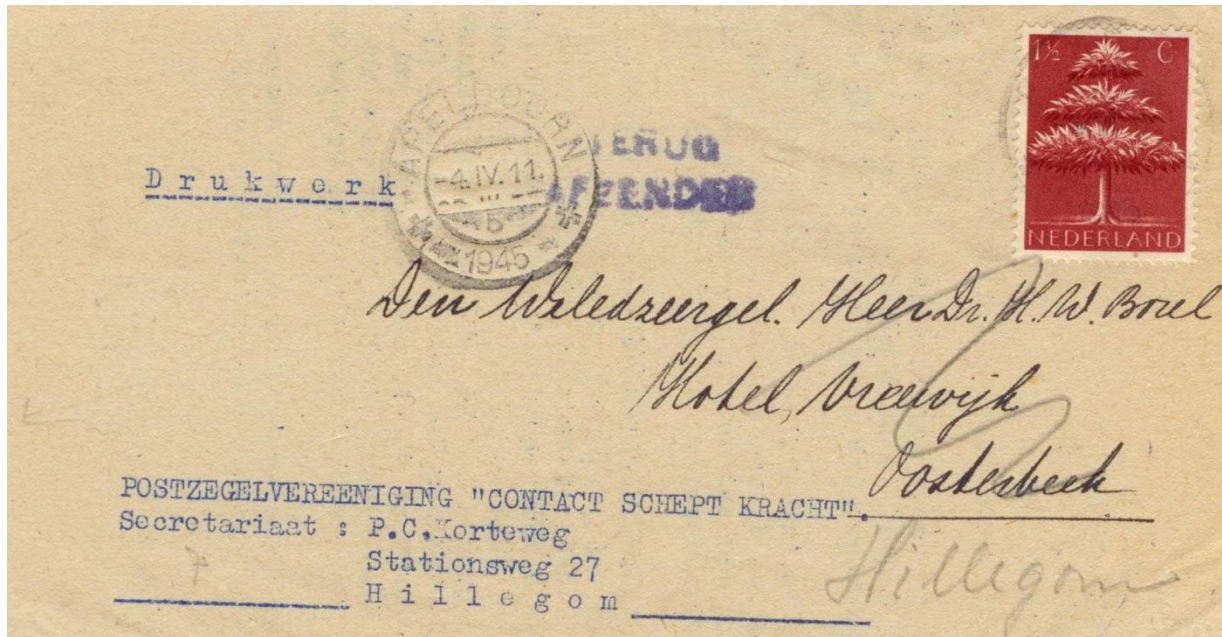 1½ C
NEDERLAND
TERUG
AFZENDER
APELDOORN
-4.IV.11.
1945
Drukwerk
Den WelEdzeergel. Heer Dr. H. W. Borel
Hotel, Vreewijk
Oosterbeek
POSTZEGELVEREENIGING "CONTACT SCHEPT KRACHT".
Secretariaat : P.C.Korteweg
Stationsweg 27
Hillegom
Hillegom